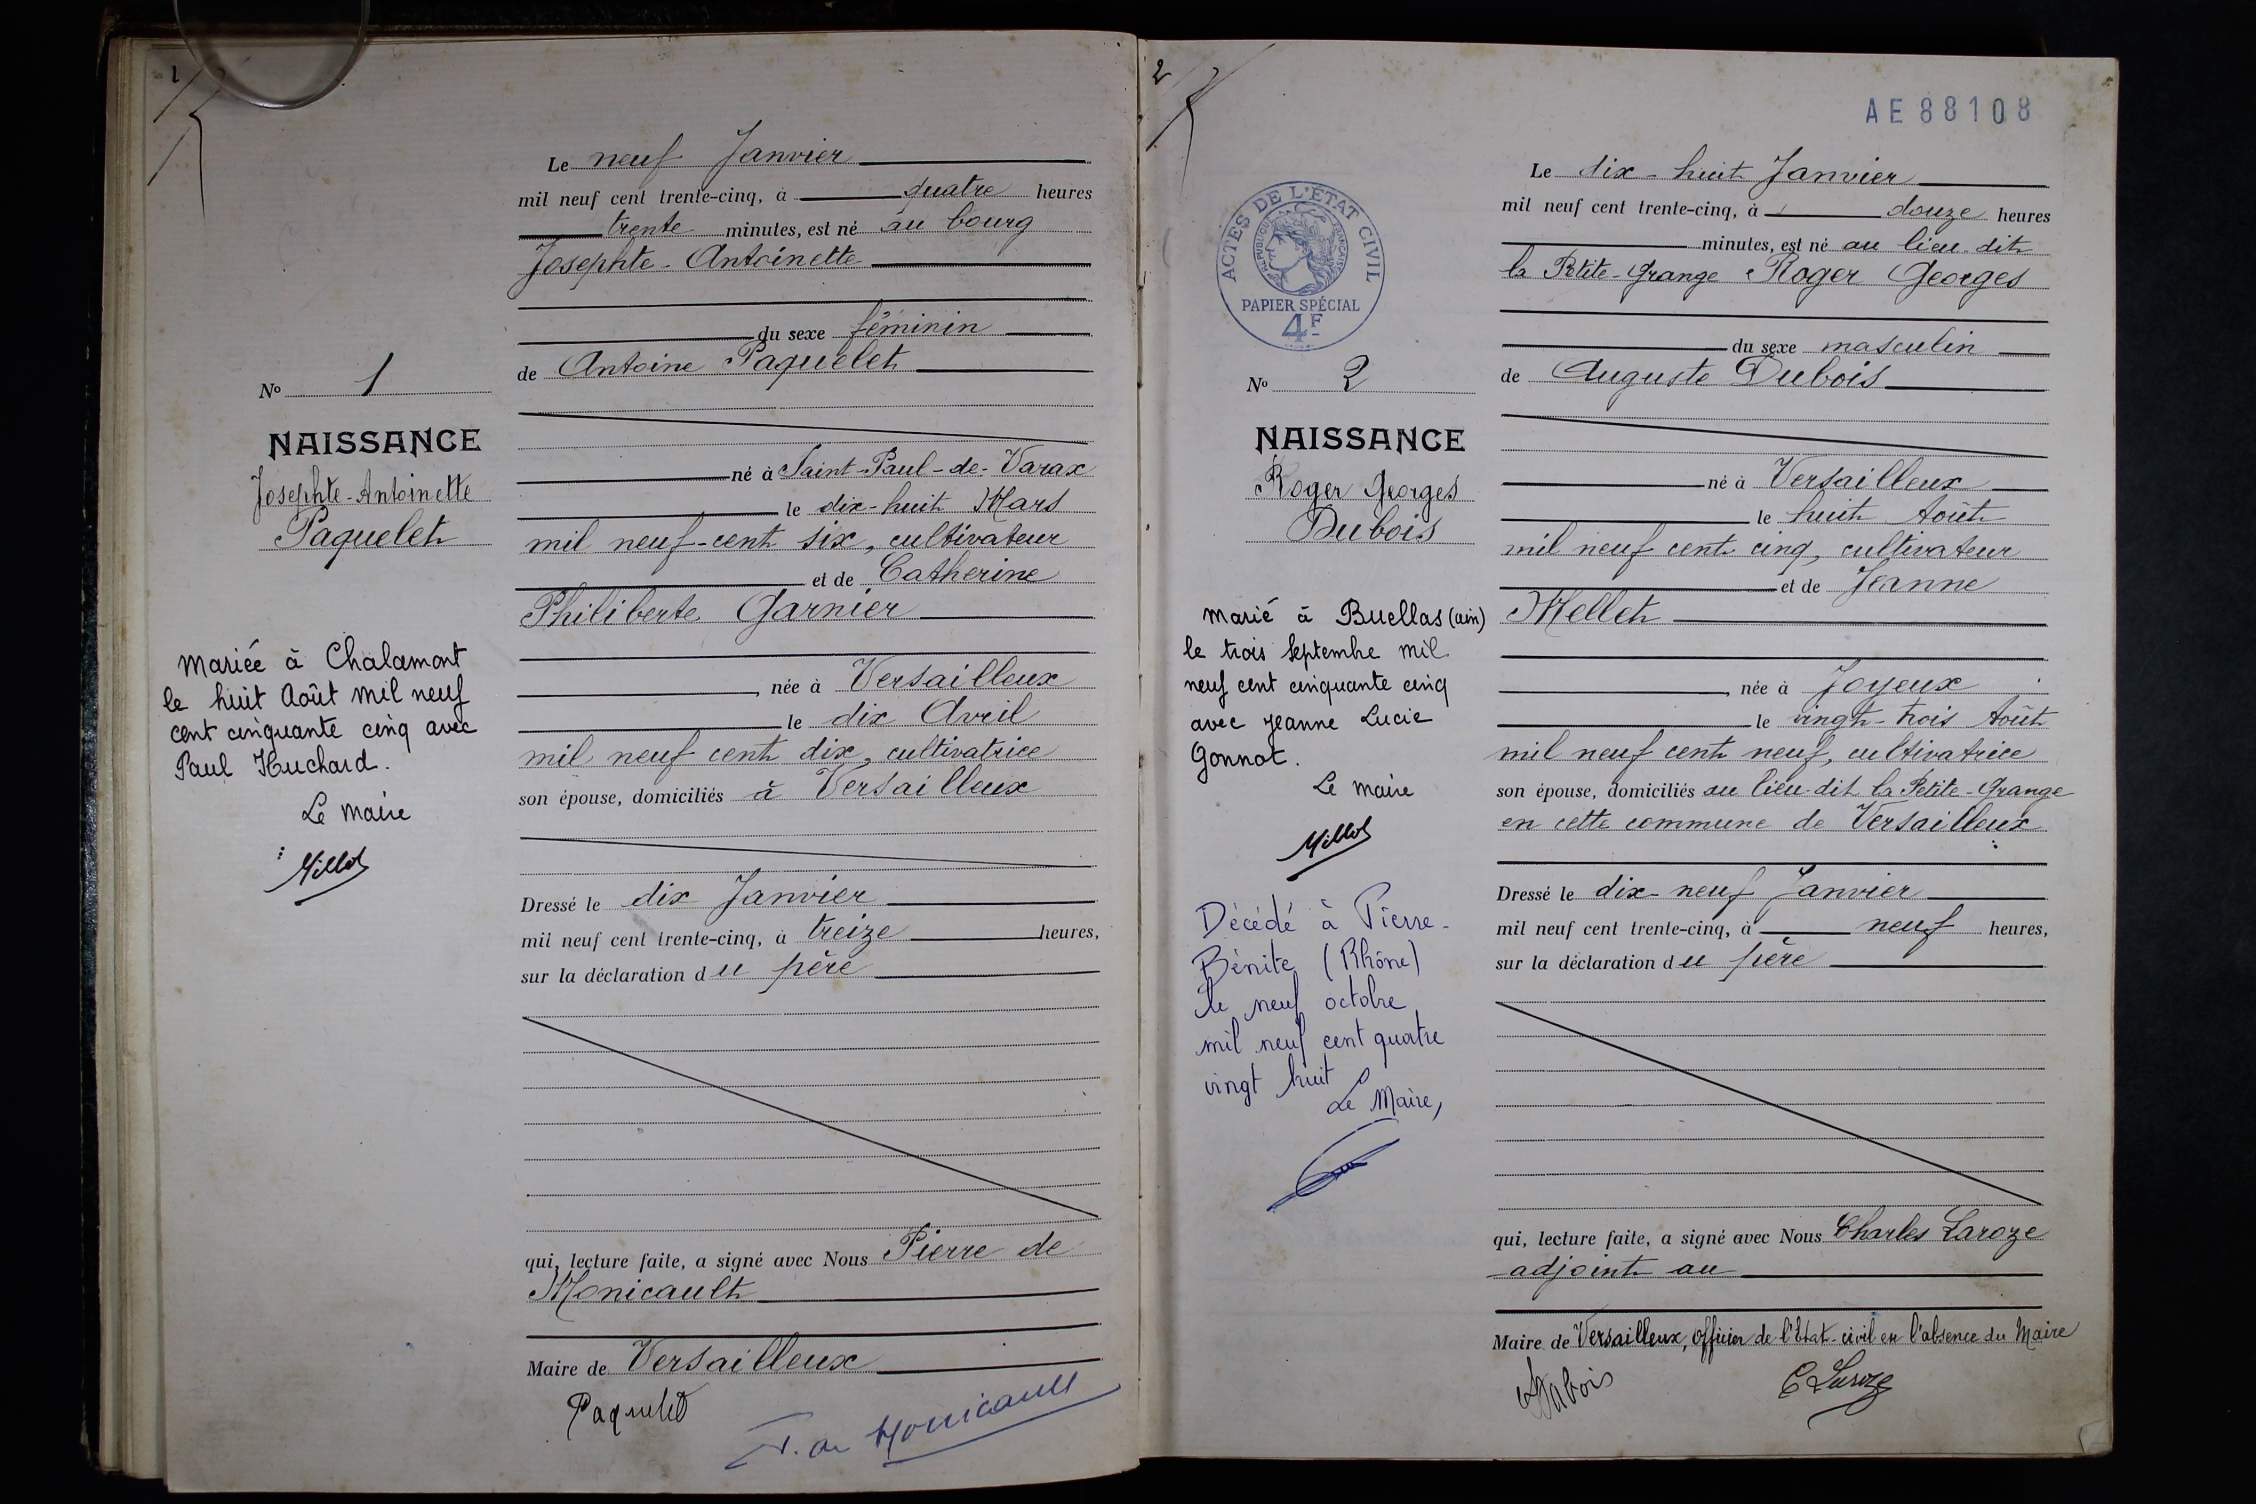 1
Le neuf Janvier
mil neuf cent trente-cinq, à quatre heures
trente minutes, est né au bourg
Josephte-Antoinette
du sexe féminin
de Antoine Paquelet
né à Saint-Paul-de-Varax
le dix-huit Mars
mil neuf-cent six, cultivateur
et de Catherine
Philiberte Garnier
, née à Versailleux
le dix Avril
mil neuf cent dix, cultivatrice
son épouse, domiciliés à Versailleux
Dressé le dix Janvier
mil neuf cent trente-cinq, à treize heures,
sur la déclaration du père
qui, lecture faite, a signé avec Nous Pierre de
Monicault
Maire de Versailleux
Paquelet
P. de Monicault
No 1
NAISSANCE
Josephte-Antoinette
Paquelet
Mariée à Chalamont
le huit Août mil neuf
cent cinquante cinq avec
Paul Huchard.
Le Maire
Millot
2
AE88108
ACTES DE L'ÉTAT CIVIL
RÉPUBLIQUE FRANÇAISE
PAPIER SPÉCIAL
4F
Le dix-huit Janvier
mil neuf cent trente-cinq, à douze heures
minutes, est né au lieu-dit
la Petite-Grange Roger Georges
du sexe masculin
de Auguste Dubois
né à Versailleux
le huit Août
mil neuf cent cinq, cultivateur
et de Jeanne
Mellet
, née à Joyeux
le vingt-trois Août
mil neuf cent neuf, cultivatrice
son épouse, domiciliés au lieu-dit la Petite-Grange
en cette commune de Versailleux
Dressé le dix-neuf Janvier
mil neuf cent trente-cinq, à neuf heures,
sur la déclaration du père
qui, lecture faite, a signé avec Nous Charles Laroze
adjoint au
Maire de Versailleux, officier de l'Etat-civil en l'absence du Maire
Dubois
C Laroze
No 2
NAISSANCE
Roger Georges
Dubois
Marié à Buellas (ain)
le trois Septembre mil
neuf cent cinquante cinq
avec Jeanne Lucie
Gonnot.
Le Maire
Millot
Décédé à Pierre-
Bénite (Rhône)
le neuf octobre
mil neuf cent quatre
vingt huit
Le Maire,